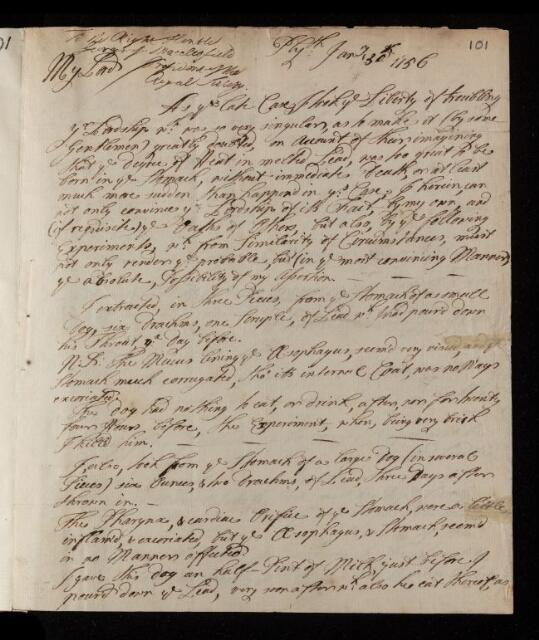 To the Right Honble
George Earl of Macclesfield
President of the
Royal Society.
101
Plyth. Jany. 30th. 1756
My Lord
As ye. late Case I took ye. Liberty of troubling
yr. Lordship wth. was so very singular, as to make it (by some
Gentlemen) greatly doubted, on account of their imagining
that ye. degree of Heat in melted Lead, was too great to be
born in ye. Stomach, without immediate Death, or at least
much more sudden than happend in ys. Case, I herein can
not only convince yr. Lordship of its Fact by my own, and
(if requisite) ye. Oaths of others, but also, by ye. following
Experiments, wch. from Similarity of Circumstances, must
not only render ye. probable but (in ye. most convincing Manner)
ye. absolute, Possibility of my assertion.
I extracted, in three Pieces, from ye. Stomach of a small
Dog, six Drachms, one Scruple, of Lead wch. I had pour'd down
his Throat ye. Day before.
N.B. The Mucus lining ye. Æsophagus, seem'd very viscid, and ye.
Stomach much corrugated, tho' its internal Coat, was no Ways
excoriated.
The Dog had nothing to eat, or drink, after, nor for twenty
four Hours before, the Experiment, when, being very brisk
I kill'd him.
I also, took from ye. Stomach of a large Dog (in several
Pieces) six Ounces, & two Drachms, of Lead, three Days after
thrown in.
The Pharynx, & cardiac Orifice of ye. Stomach, were a little
inflam'd, & excoriated, but ye. Æsophagus, & Stomach, seem'd
in no Manner affected
I gave this Dog an half-Pint of Milk, just before I
pour'd down ye. Lead, very soon after wch. also he eat thereof, as